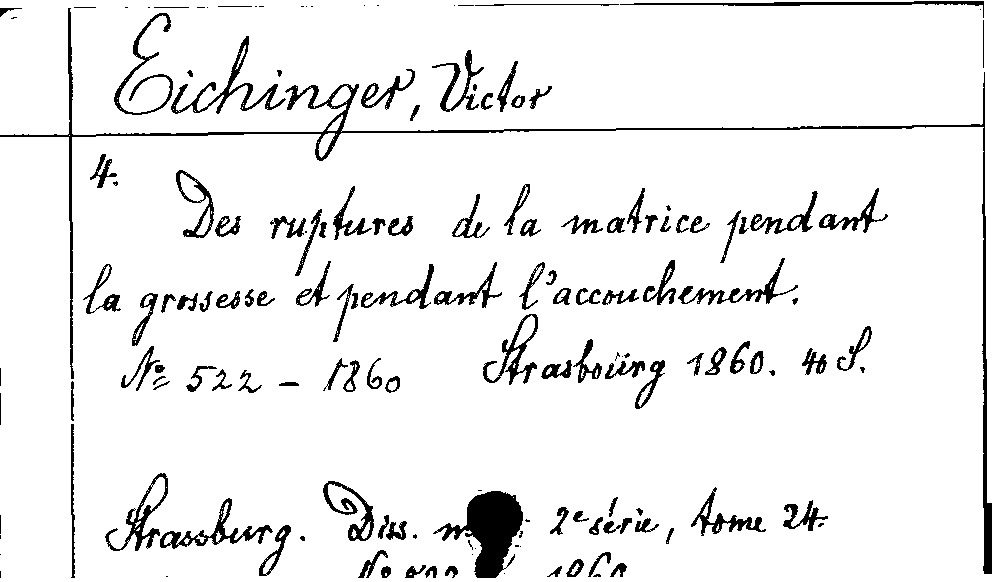 Eichinger, Victor
4.
Des ruptures de la matrice pendant
la grossesse et pendant l'accouchement.
№ 522 – 1860 Strasbourg 1860. 40 S.
Strassburg. Diss. 2e série, tome 24.
1860